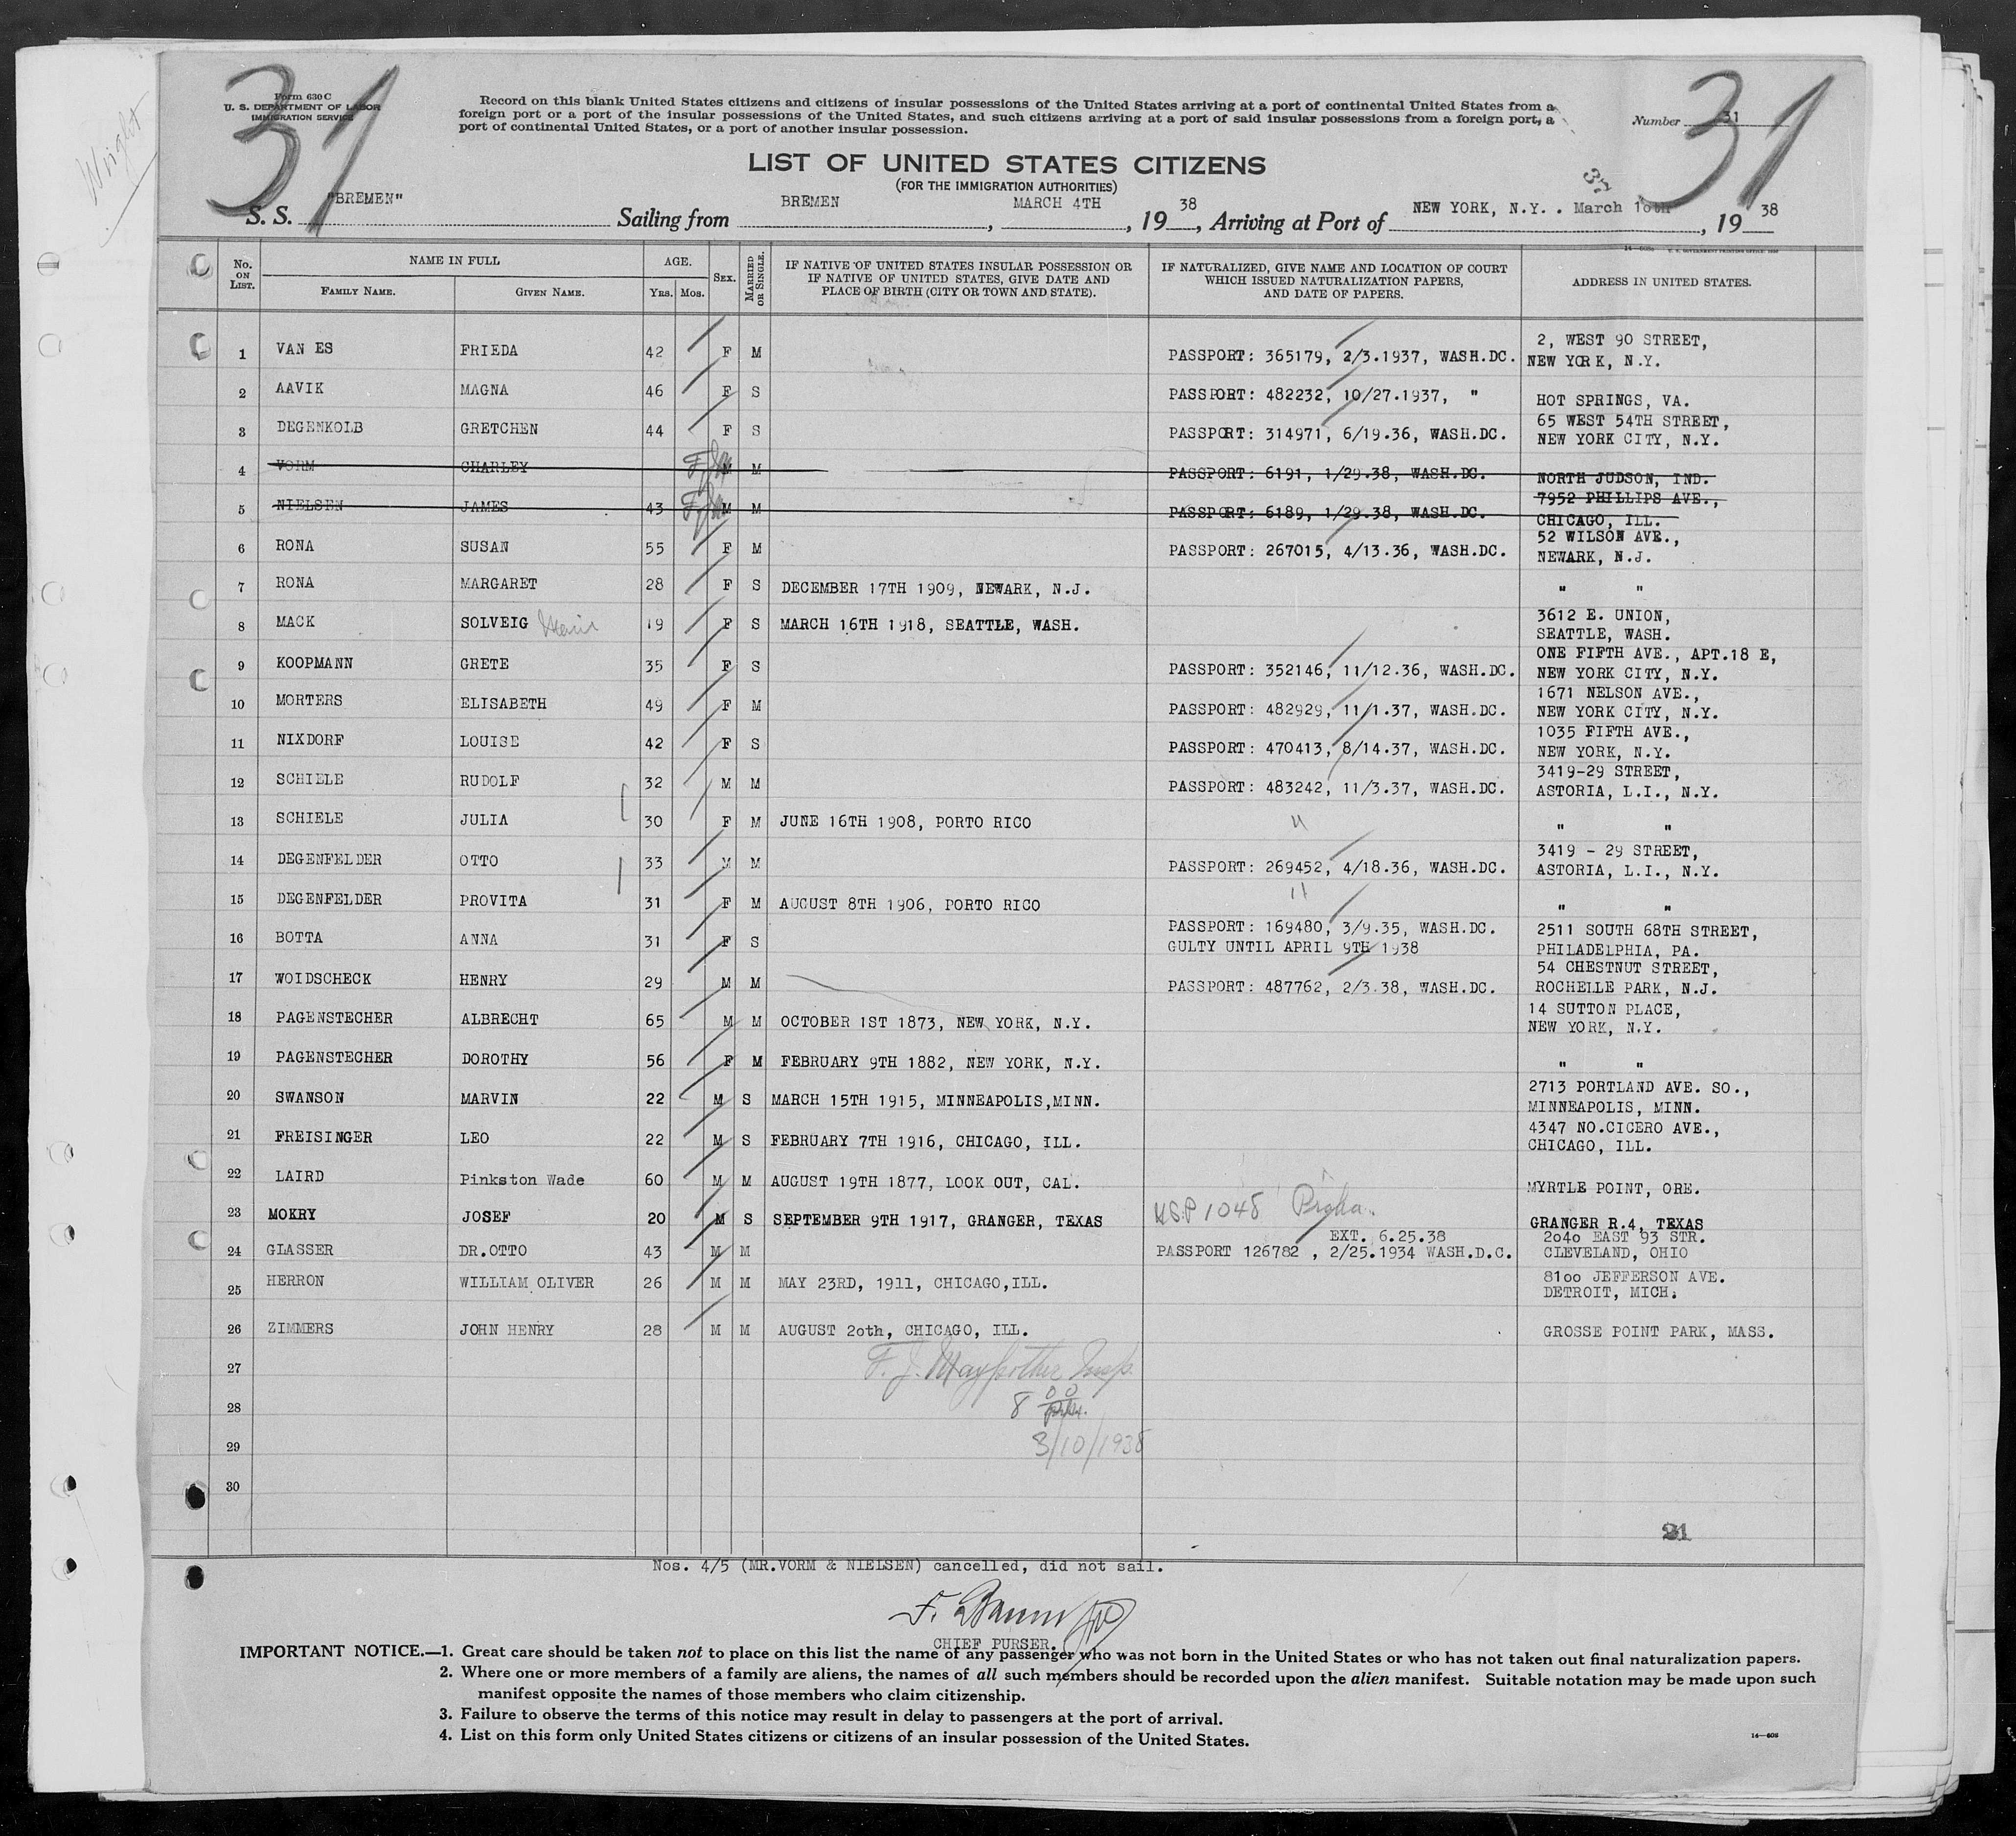 31
31
Wright
Form 630 C
U. S. DEPARTMENT OF LABOR
IMMIGRATION SERVICE
Record on this blank United States citizens and citizens of insular possessions of the United States arriving at a port of continental United States from a
foreign port or a port of the insular possessions of the United States, and such citizens arriving at a port of said insular possessions from a foreign port, a
port of continental United States, or a port of another insular possession.
Number 31
LIST OF UNITED STATES CITIZENS
(FOR THE IMMIGRATION AUTHORITIES)
37
S. S. "BREMEN" Sailing from BREMEN, MARCH 4TH, 1938, Arriving at Port of NEW YORK, N.Y.. March 10th, 1938
14—608 U. S. GOVERNMENT PRINTING OFFICE: 1936
No. ON LIST. NAME IN FULL FAMILY NAME. GIVEN NAME. AGE. YRS. MOS. SEX. MARRIED OR SINGLE. IF NATIVE OF UNITED STATES INSULAR POSSESSION OR IF NATIVE OF UNITED STATES, GIVE DATE AND PLACE OF BIRTH (CITY OR TOWN AND STATE). IF NATURALIZED, GIVE NAME AND LOCATION OF COURT WHICH ISSUED NATURALIZATION PAPERS, AND DATE OF PAPERS. ADDRESS IN UNITED STATES.
1 VAN ES FRIEDA 42 F M PASSPORT: 365179, 2/3.1937, WASH.DC. 2, WEST 90 STREET, NEW YORK, N.Y.
2 AAVIK MAGNA 46 F S PASSPORT: 482232, 10/27.1937, " HOT SPRINGS, VA.
3 DEGENKOLB GRETCHEN 44 F S PASSPORT: 314971, 6/19.36, WASH.DC. 65 WEST 54TH STREET, NEW YORK CITY, N.Y.
4 VORM CHARLEY M M PASSPORT: 6191, 1/29.38, WASH.DC. NORTH JUDSON, IND.
5 NIELSEN JAMES 43 M M PASSPORT: 6189, 1/29.38, WASH.DC. 7952 PHILLIPS AVE., CHICAGO, ILL.
6 RONA SUSAN 55 F M PASSPORT: 267015, 4/13.36, WASH.DC. 52 WILSON AVE., NEWARK, N.J.
7 RONA MARGARET 28 F S DECEMBER 17TH 1909, NEWARK, N.J. " "
8 MACK SOLVEIG 19 F S MARCH 16TH 1918, SEATTLE, WASH. 3612 E. UNION, SEATTLE, WASH.
9 KOOPMANN GRETE 35 F S PASSPORT: 352146, 11/12.36, WASH.DC. ONE FIFTH AVE., APT.18 E, NEW YORK CITY, N.Y.
10 MORTERS ELISABETH 49 F M PASSPORT: 482929, 11/1.37, WASH.DC. 1671 NELSON AVE., NEW YORK CITY, N.Y.
11 NIXDORF LOUISE 42 F S PASSPORT: 470413, 8/14.37, WASH.DC. 1035 FIFTH AVE., NEW YORK, N.Y.
12 SCHIELE RUDOLF 32 M M PASSPORT: 483242, 11/3.37, WASH.DC. 3419-29 STREET, ASTORIA, L.I., N.Y.
13 SCHIELE JULIA 30 F M JUNE 16TH 1908, PORTO RICO " " "
14 DEGENFELDER OTTO 33 M M PASSPORT: 269452, 4/18.36, WASH.DC. 3419 - 29 STREET, ASTORIA, L.I., N.Y.
15 DEGENFELDER PROVITA 31 F M AUGUST 8TH 1906, PORTO RICO " " "
16 BOTTA ANNA 31 F S PASSPORT: 169480, 3/9.35, WASH.DC. GULTY UNTIL APRIL 9TH 1938 2511 SOUTH 68TH STREET, PHILADELPHIA, PA.
17 WOIDSCHECK HENRY 29 M M PASSPORT: 487762, 2/3.38, WASH.DC. 54 CHESTNUT STREET, ROCHELLE PARK, N.J.
18 PAGENSTECHER ALBRECHT 65 M M OCTOBER 1ST 1873, NEW YORK, N.Y. 14 SUTTON PLACE, NEW YORK, N.Y.
19 PAGENSTECHER DOROTHY 56 F M FEBRUARY 9TH 1882, NEW YORK, N.Y. " "
20 SWANSON MARVIN 22 M S MARCH 15TH 1915, MINNEAPOLIS,MINN. 2713 PORTLAND AVE. SO., MINNEAPOLIS, MINN.
21 FREISINGER LEO 22 M S FEBRUARY 7TH 1916, CHICAGO, ILL. 4347 NO.CICERO AVE., CHICAGO, ILL.
22 LAIRD Pinkston Wade 60 M M AUGUST 19TH 1877, LOOK OUT, CAL. MYRTLE POINT, ORE.
23 MOKRY JOSEF 20 M S SEPTEMBER 9TH 1917, GRANGER, TEXAS USP 1048 Praha. GRANGER R.4, TEXAS
24 GLASSER DR.OTTO 43 M M EXT. 6.25.38 PASSPORT 126782 , 2/25.1934 WASH.D.C. 2o4o EAST 93 STR. CLEVELAND, OHIO
25 HERRON WILLIAM OLIVER 26 M M MAY 23RD, 1911, CHICAGO,ILL. 81oo JEFFERSON AVE. DETROIT, MICH.
26 ZIMMERS JOHN HENRY 28 M M AUGUST 2oth, CHICAGO, ILL. GROSSE POINT PARK, MASS.
27 F. J. Maypother Insp.
28 8 00
29 3/10/1938
30
21
Nos. 4/5 (MR.VORM & NIELSEN) cancelled, did not sail.
CHIEF PURSER.
IMPORTANT NOTICE.—1. Great care should be taken not to place on this list the name of any passenger who was not born in the United States or who has not taken out final naturalization papers.
2. Where one or more members of a family are aliens, the names of all such members should be recorded upon the alien manifest. Suitable notation may be made upon such
manifest opposite the names of those members who claim citizenship.
3. Failure to observe the terms of this notice may result in delay to passengers at the port of arrival.
4. List on this form only United States citizens or citizens of an insular possession of the United States.
14—608